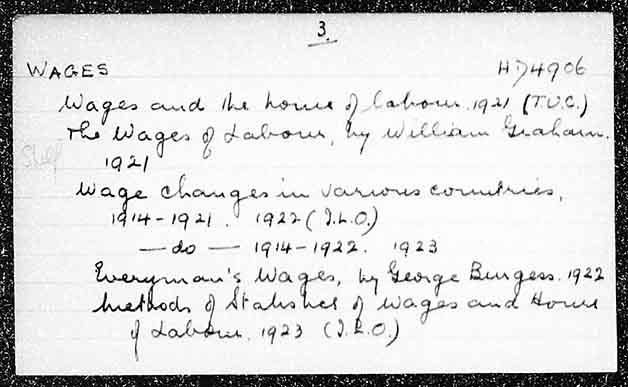 3.
WAGES HD4906
Wages and the hours of labour. 1921 (T.U.C.)
The Wages of Labour, by William Graham.
Shelf
1921
Wage changes in various countries,
1914-1921. 1922 (I.L.O.)
— do — 1914-1922. 1923
Everyman's Wages, by George Burgess. 1922
Methods of Statistics of Wages and Hours
of Labour. 1923 (I.L.O.)